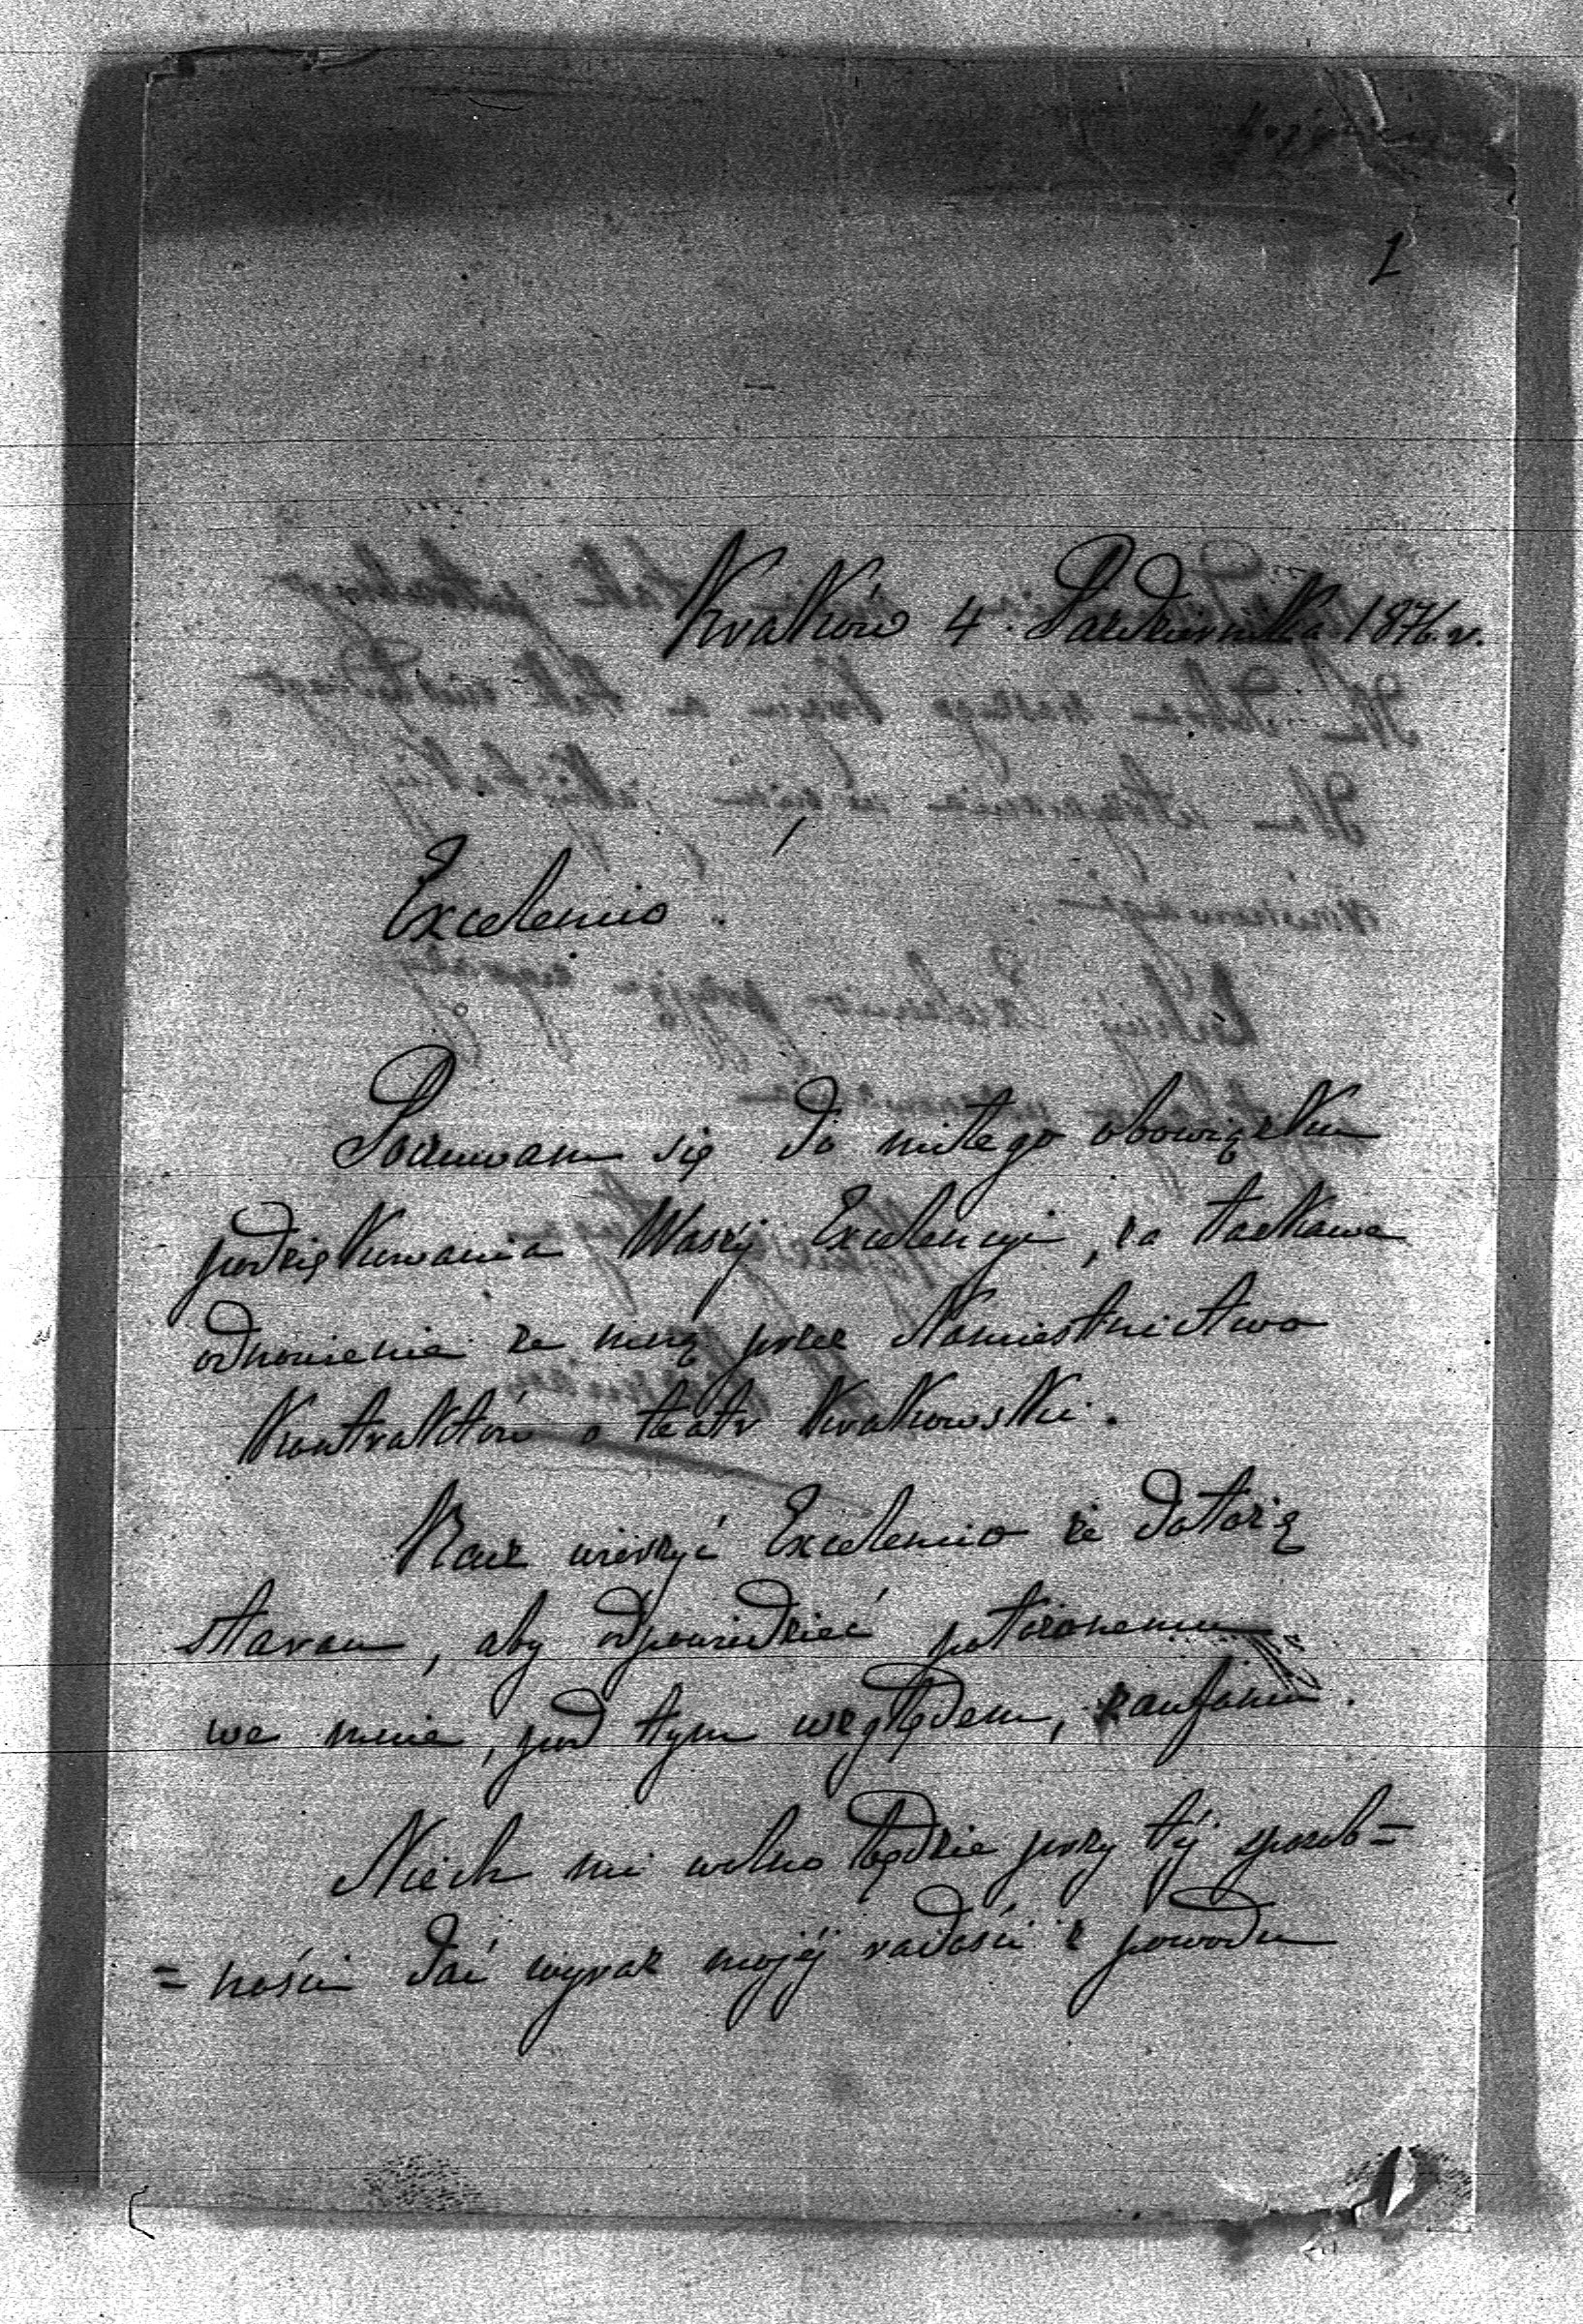 1
Kraków 4. Października 1876. r.
Excelencio
Poczuwam się do miłego obowiązku
podziękowania Waszéj Excelencyi, za łaskawe
odnowienie ze mną przez Namiestnictwo
Kontraktów o teatr Krakowski.
Racz wierzyć Excelencio że dołożę
staran, aby odpowiedzieć położonemu
we mnie, pod tym względem, zaufaniu.
Niech mi wolno będzie przy téj sposob=
=ności dać wyraz mojéj radości z powodu